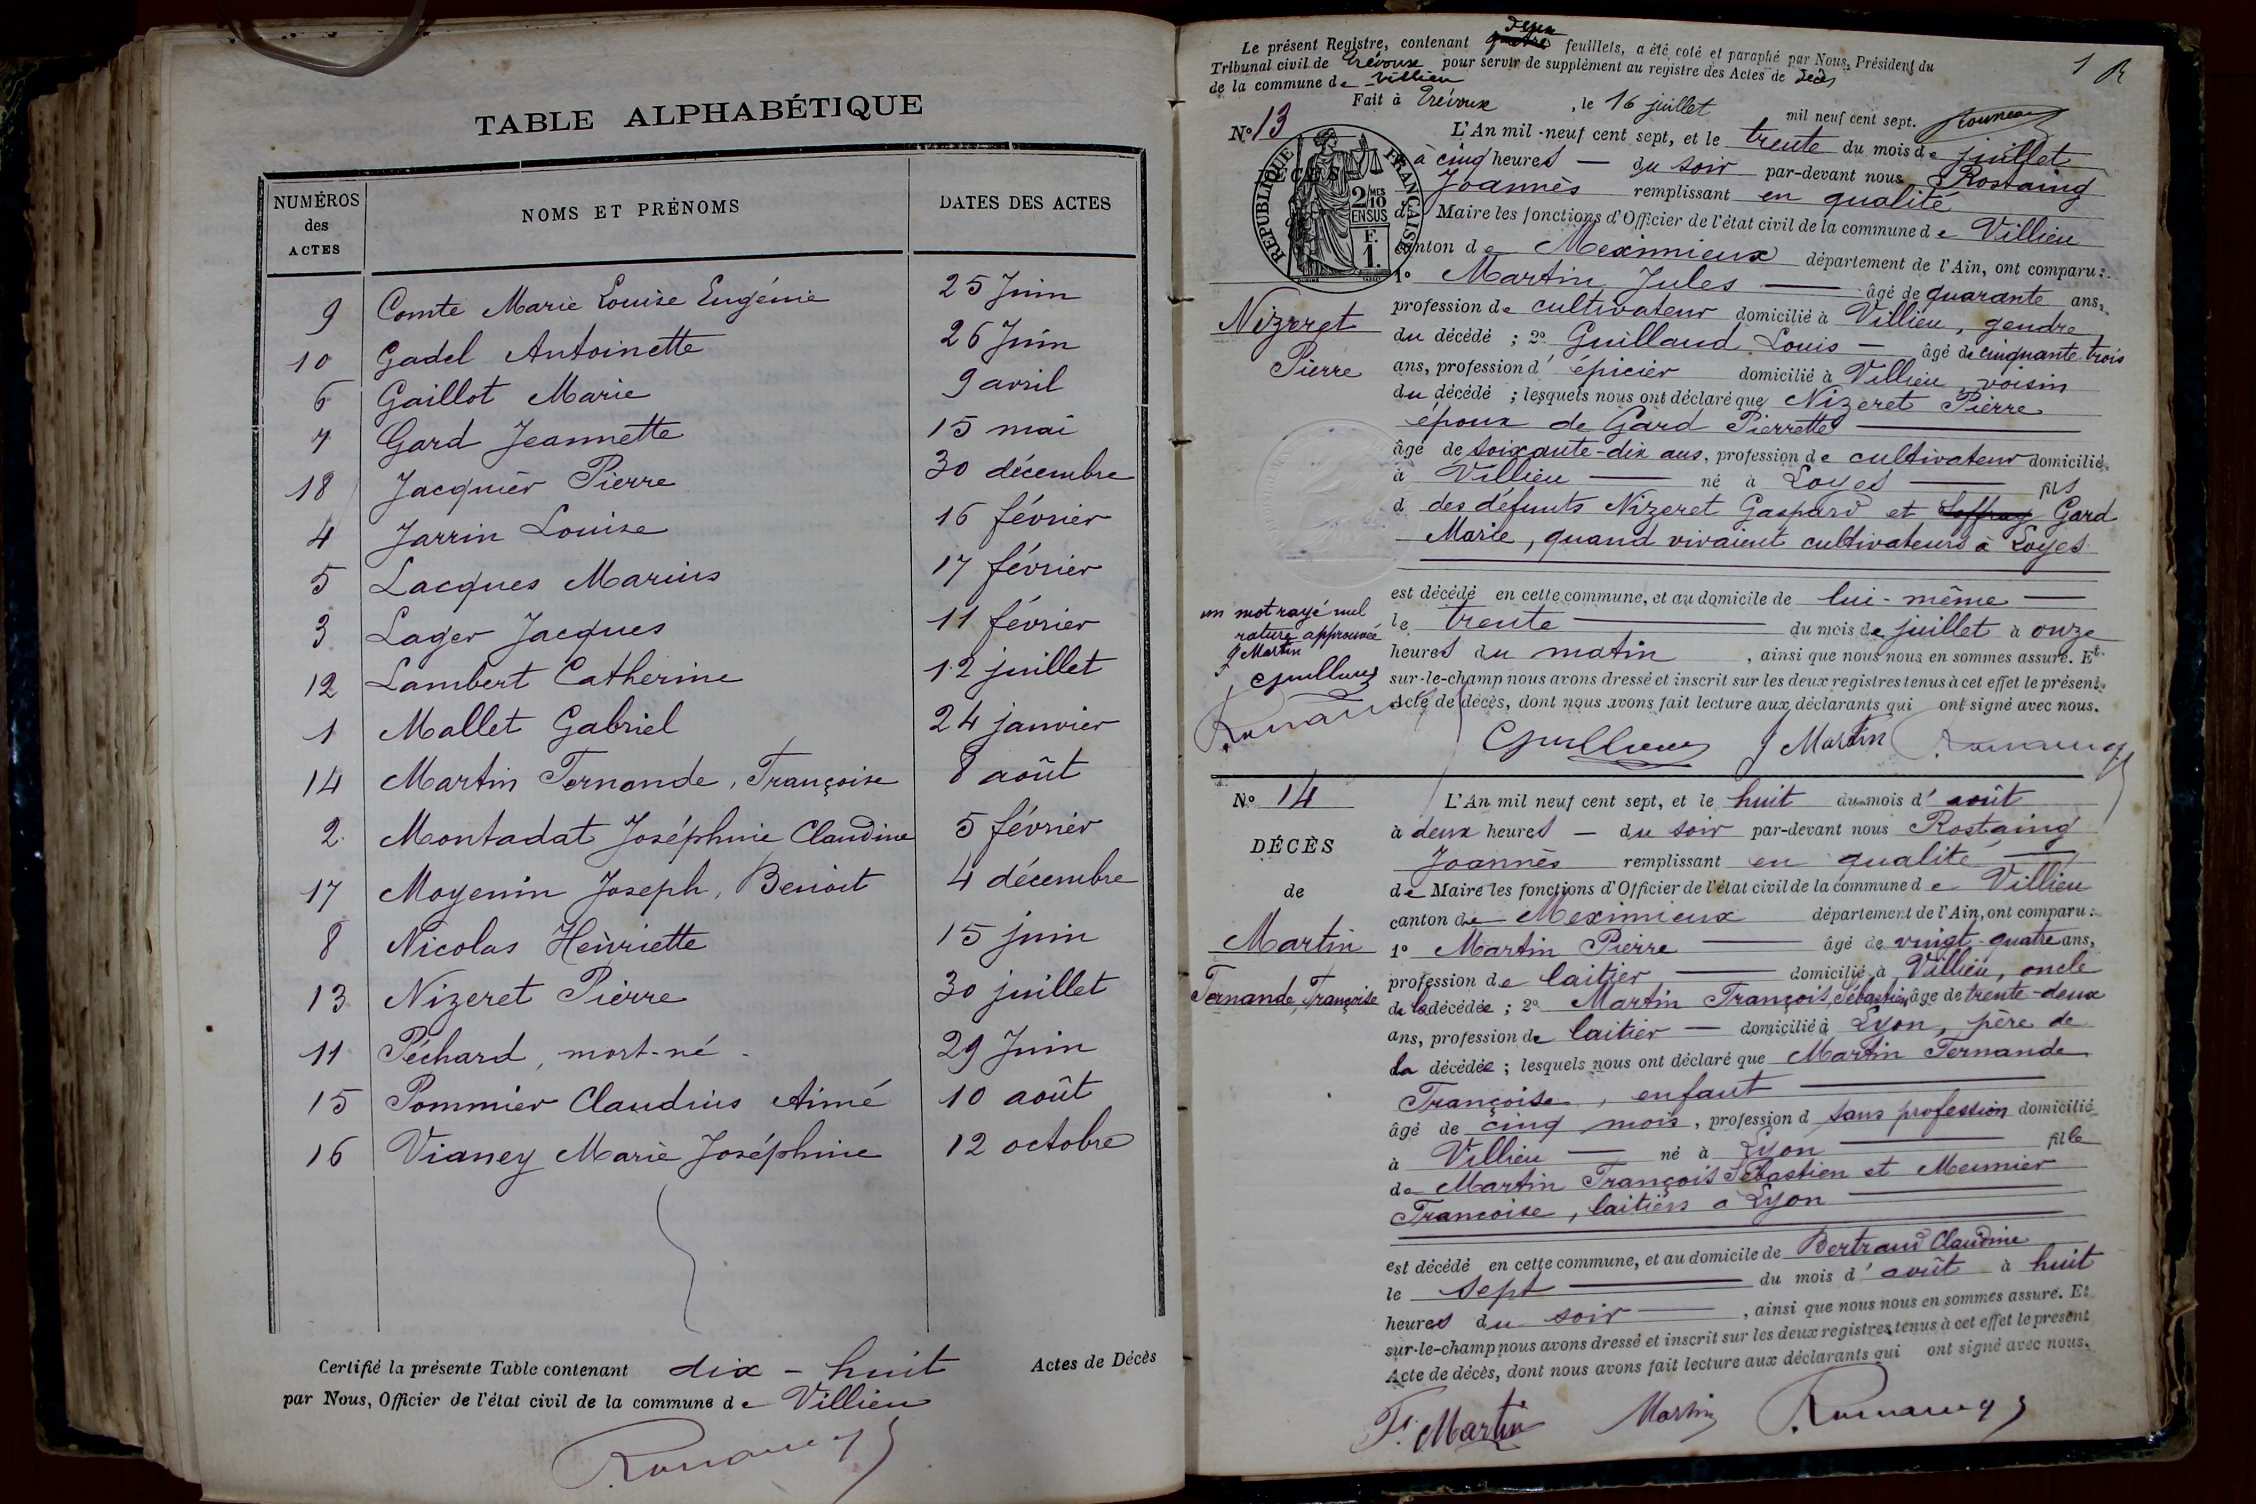 TABLE ALPHABÉTIQUE
NUMÉROS des ACTES
NOMS ET PRÉNOMS
DATES DES ACTES
9 Comte Marie Louise Eugénie 25 Juin
10 Gadel Antoinette 26 Juin
6 Gaillot Marie 9 avril
7 Gard Jeannette 15 mai
18 Jacquier Pierre 30 décembre
4 Jarrin Louise 16 février
5 Lacques Marius 17 février
3 Lager Jacques 11 février
12 Lambert Catherine 12 juillet
1 Mallet Gabriel 24 janvier
14 Martin Fernande, Françoise 8 août
2 Montadat Joséphine Claudine 5 février
17 Moyenin Joseph, Benoit 4 décembre
8 Nicolas Henriette 15 juin
13 Nizeret Pierre 30 juillet
11 Péchard, mort-né 29 Juin
15 Pommier Claudius Aimé 10 août
16 Vianey Marie Joséphine 12 octobre
Certifié la présente Table contenant dix-huit Actes de Décès
par Nous, Officier de l'état civil de la commune de Villieu
1
Le présent Registre, contenant deux feuillets, a été coté et paraphé par Nous, Président du
Tribunal civil de Trévoux pour servir de supplément au registre des Actes de décès
de la commune de Villieu
Fait à Trévoux, le 16 juillet mil neuf cent sept.
N° 13
RÉPUBLIQUE FRANÇAISE
2/10 MES
EN SUS
F.
1.
Nizeret
Pierre
L'An mil neuf cent sept, et le trente du mois de juillet
à cinq heures — du soir par-devant nous Rostaing
Joannès remplissant en qualité
de Maire les fonctions d'Officier de l'état civil de la commune de Villieu
canton de Meximieux département de l'Ain, ont comparu :
1° Martin Jules — âgé de quarante ans,
profession de cultivateur domicilié à Villieu, gendre
du décédé ; 2° Guillaud Louis — âgé de cinquante trois
ans, profession d'épicier domicilié à Villieu, voisin
du décédé ; lesquels nous ont déclaré que Nizeret Pierre
époux de Gard Pierrette
âgé de soixante-dix ans, profession de cultivateur domicilié
à Villieu — né à Loyes — fils
d des défunts Nizeret Gaspard et Gard
Marie, quand vivaient cultivateurs à Loyes
est décédé en cette commune, et au domicile de lui-même —
le trente — du mois de juillet à onze
heures du matin, ainsi que nous nous en sommes assuré. Et
sur-le-champ nous avons dressé et inscrit sur les deux registres tenus à cet effet le présent
Acte de décès, dont nous avons fait lecture aux déclarants qui ont signé avec nous.
un mot rayé nul
rature approuvée
J Martin
J Martin
N° 14
DÉCÈS
de
Martin
Fernande, Françoise
L'An mil neuf cent sept, et le huit du mois d'août
à deux heures — du soir par-devant nous Rostaing
Joannès remplissant en qualité —
de Maire les fonctions d'Officier de l'état civil de la commune de Villieu
canton de Meximieux département de l'Ain, ont comparu :
1° Martin Pierre — âgé de vingt-quatre ans,
profession de laitier — domicilié à Villieu, oncle
de la décédée ; 2° Martin François, Sébastien âgé de trente-deux
ans, profession de laitier — domicilié à Lyon, père de
la décédée ; lesquels nous ont déclaré que Martin Fernande
Françoise, enfant —
âgé de cinq mois, profession d sans profession domicilié
à Villieu — né à Lyon — fille
de Martin François Sébastien et Meunier
Francoise, laitiers à Lyon —
est décédé en cette commune, et au domicile de Bertrand Claudine
le sept — du mois d'août à huit
heures du soir —, ainsi que nous nous en sommes assuré. Et
sur-le-champ nous avons dressé et inscrit sur les deux registres tenus à cet effet le présent
Acte de décès, dont nous avons fait lecture aux déclarants qui ont signé avec nous.
F. Martin Martin